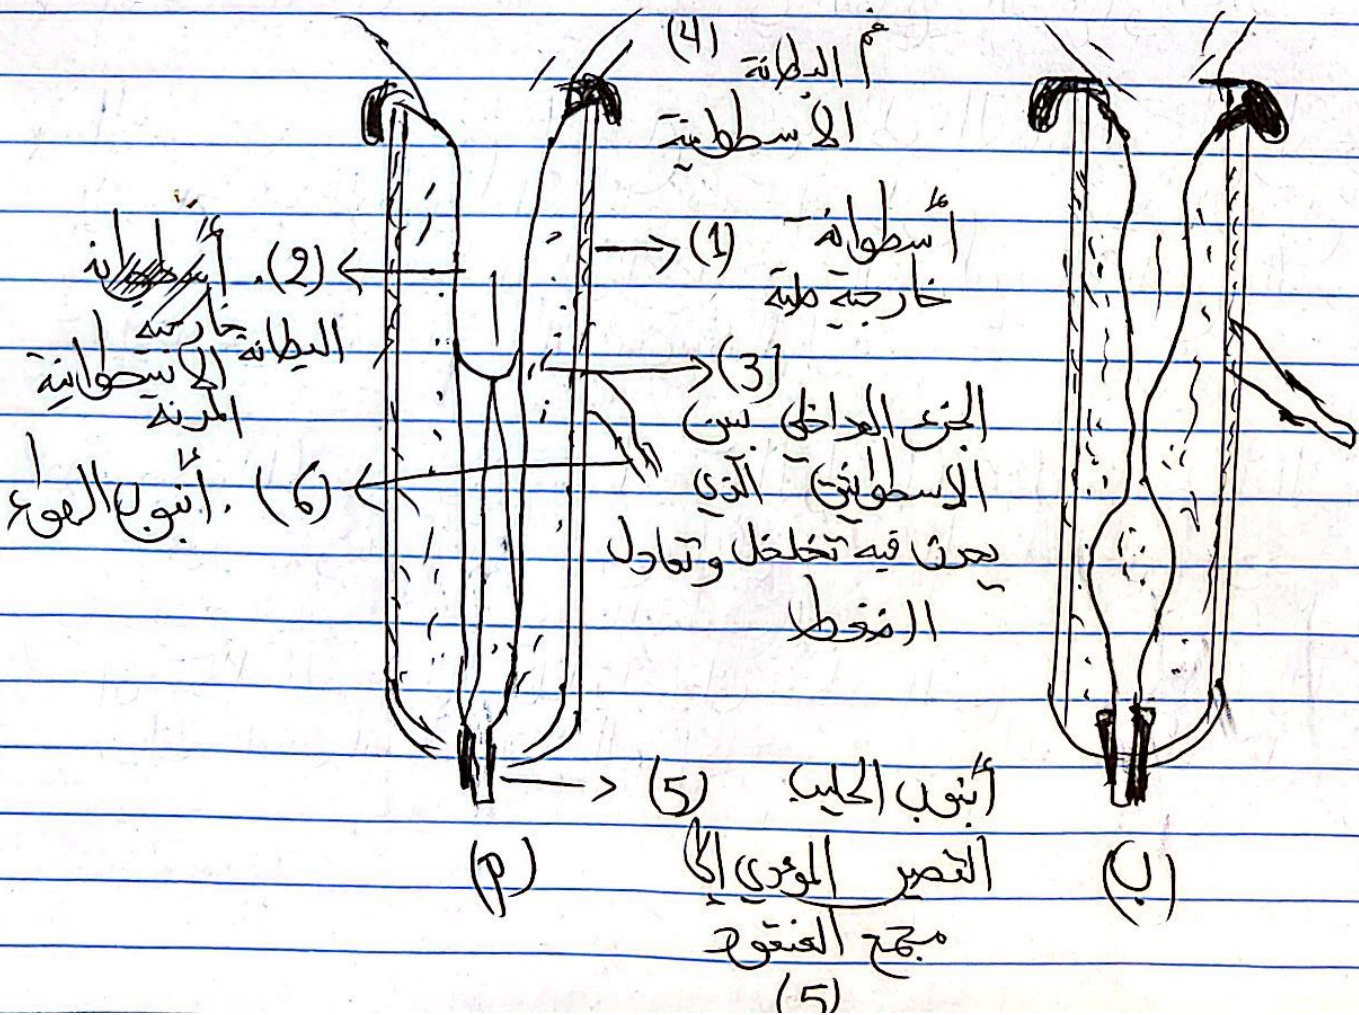 (4) فم البطانة
الاسطوانية
(1) أسطوانة
خارجية صلبة
(2). أسطوانة
خارجية
البطانة
الاسطوانية
المرنة
(3)
الجزء الداخلي بين
الاسطوانتين الذي
يحدث فيه تخلخل وتعادل
الضغط
(6). أنبوب الهواء
(5) أنبوب الحليب
القصير المؤدي إلى
مجمع العنقود
(5)
(أ)
(ب)